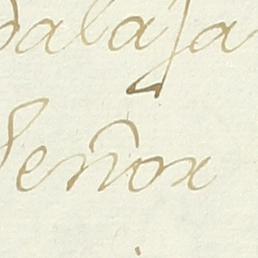 dalaja
Señor